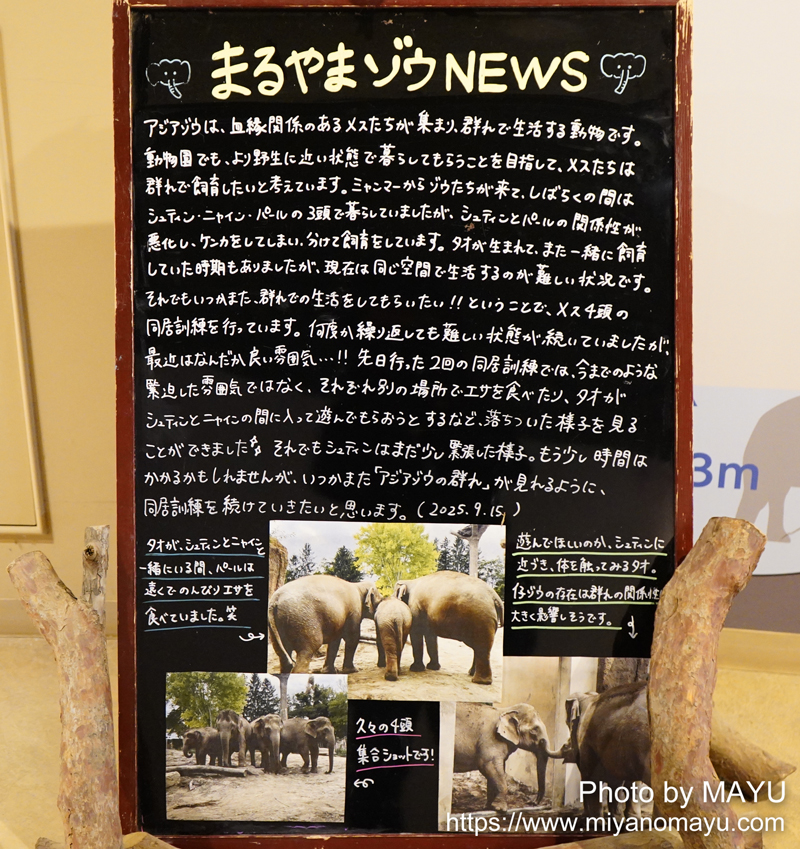 まるやまゾウNEWS
アジアゾウは、血縁関係のあるメスたちが集まり、群れで生活する動物です。
動物園でも、より野生に近い状態で暮らしてもらうことを目指して、メスたちは
群れで飼育したいと考えています。ミャンマーからゾウたちが来て、しばらくの間は
シュティン・ニャイン・パールの3頭で暮らしていましたが、シュティンとパールの関係性が
悪化し、ケンカをしてしまい、分けて飼育をしています。タオが生まれて、また一緒に飼育
していた時期もありましたが、現在は同じ空間で生活するのが難しい状況です。
それでもいつかまた、群れでの生活をしてもらいたい!!ということで、メス4頭の
同居訓練を行っています。何度か繰り返しても難しい状態が続いていましたが、
最近はなんだか良い雰囲気…!!先日行った2回の同居訓練では、今までのような
緊迫した雰囲気ではなく、それぞれ別の場所でエサを食べたり、タオが
シュティンとニャインの間に入って遊んでもらおうとするなど、落ちついた様子を見る
ことができました それでもシュティンはまだ少し緊張した様子。もう少し時間は
かかるかもしれませんが、いつかまた「アジアゾウの群れ」が見れるように、
同居訓練を続けていきたいと思います。(2025.9.15)
タオが、シュティンとニャインと
一緒にいる間、パールは
遠くでのんびりエサを
食べていました。笑
遊んでほしいのか、シュティンに
近づき、体を触ってみるタオ。
仔ゾウの存在は群れの関係性に
大きく影響しそうです。
久々の4頭
集合ショットです!
3m
Photo by MAYU
https://www.miyanomayu.com